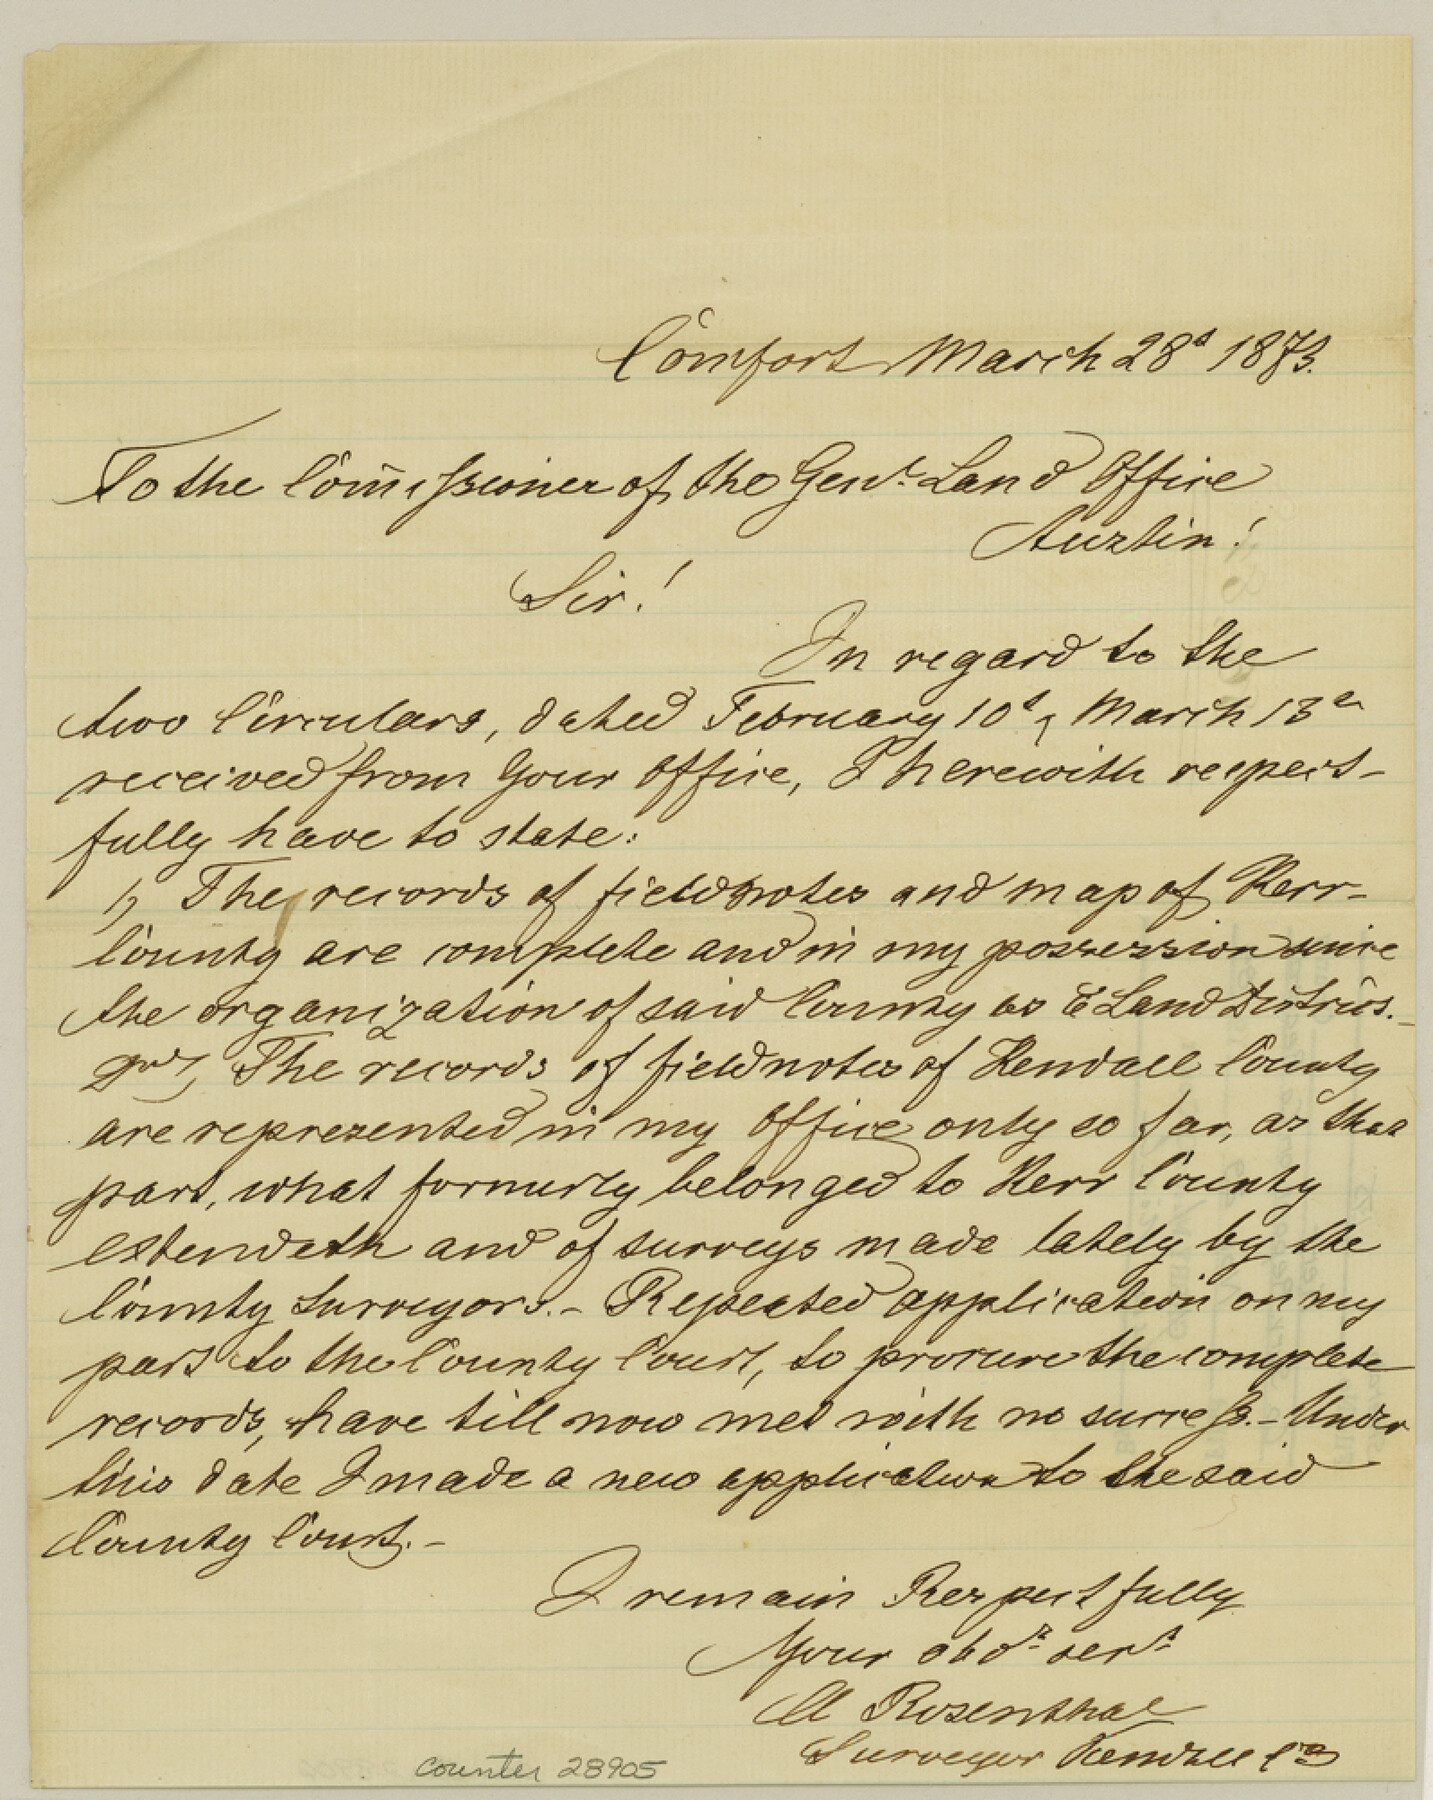 Comfort March 28t 1873.
To the Commissioner of the Genl. Land Office
Austin!
Sir!
In regard to the
two Circulars, dated February 10t, March 13th
received from Your Office, I herewith respect-
fully have to state:
1) The records of fieldnotes and map of Kerr-
County are complete and in my possession since
the organization of said County as Land District.
2nd), The records of fieldnotes of Kendall County
are represented in my Office only so far, as that
part, what formerly belonged to Kerr County
extendeth and of surveys made lately by the
County Surveyors.- Repeated application on my
part to the County Court, to procure the complete
records, have till now met with no success.- Under
this date I made a new application to the said
County Court.-
I remain Respectfully
Your obdt servt
A Rosenthal
Surveyor Kendall Co
counter 28905